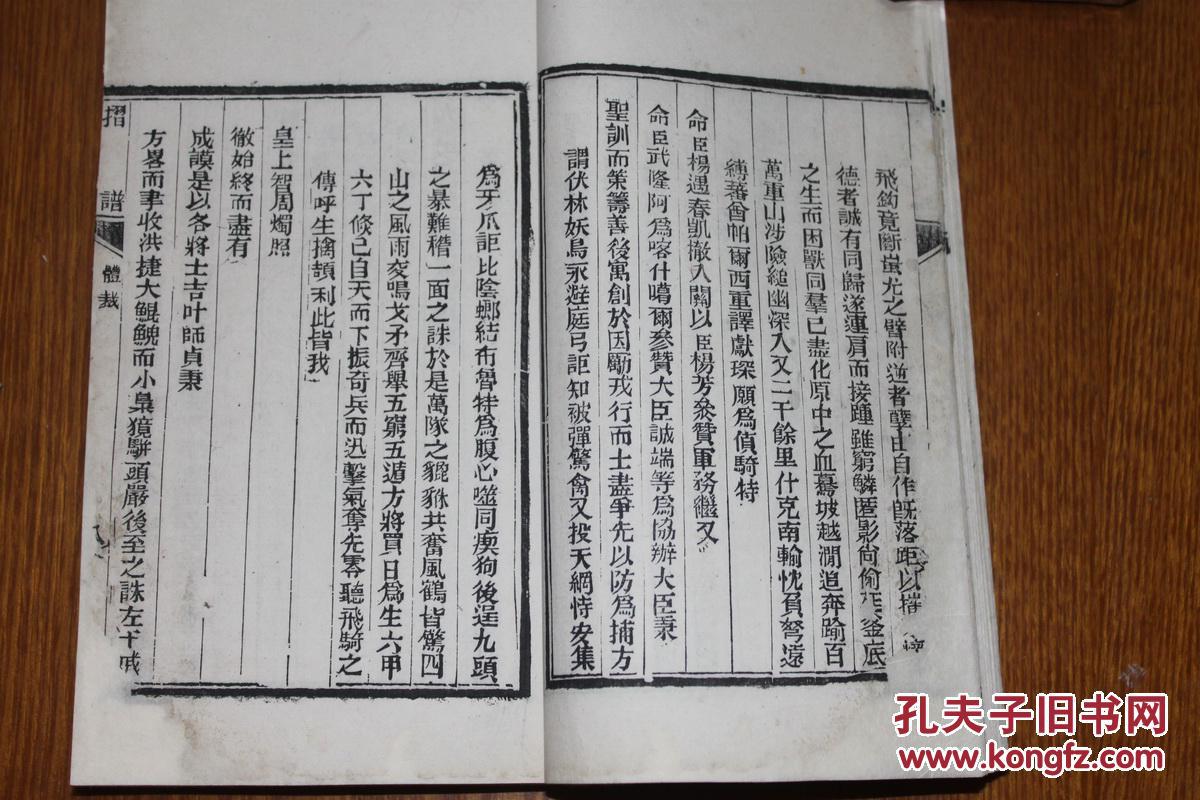 飛鉤竟斷蚩尤之臂附逆者孽由自作旣落距以摧
德者誠有同歸遂連肩而接踵雖窮鱗匿影尙偷在釜底
之生而困獸同羣已盡化原中之血驀坡越澗追奔踰百
萬重山涉險縋幽深入又二千餘里什克南輸忱負弩遠
縛蕃酋帕爾西重譯獻琛願爲偵騎特
命臣楊遇春凱撤入關以臣楊芳叅贊軍務繼又
命臣武隆阿爲喀什噶爾參贊大臣誠端等爲協辦大臣秉
聖訓而策籌善後寓創於因勵戎行而士盡爭先以防爲捕方
謂伏林妖鳥永避庭弓詎知被彈驚禽又投天網恃安集
爲牙爪詎比陰螂結布魯特爲腹心噬同瘈狗後逞九頭
之暴難稽一面之誅於是萬隊之貔貅共奮風鶴皆驚四
山之風雨交鳴戈矛齊舉五窮五遁方將買日爲生六甲
六丁倏已自天而下振奇兵而迅擊氣奪先零聽飛騎之
傳呼生擒頡利此皆我
皇上智周燭照
徹始終而盡有
成謨是以各將士吉叶師貞秉
方畧而事收洪捷大鯤鯢而小梟獍駢頭嚴後至之誅左干戚
摺譜
體裁
孔夫子旧书网
www.kongfz.com